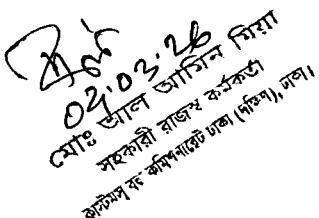 ০৭.০৩.২৬
মোঃ আল আমিন মিয়া
সহকারী রাজস্ব কর্মকর্তা
কাস্টমস্ বন্ড কমিশনারেট ঢাকা (দক্ষিণ), ঢাকা।